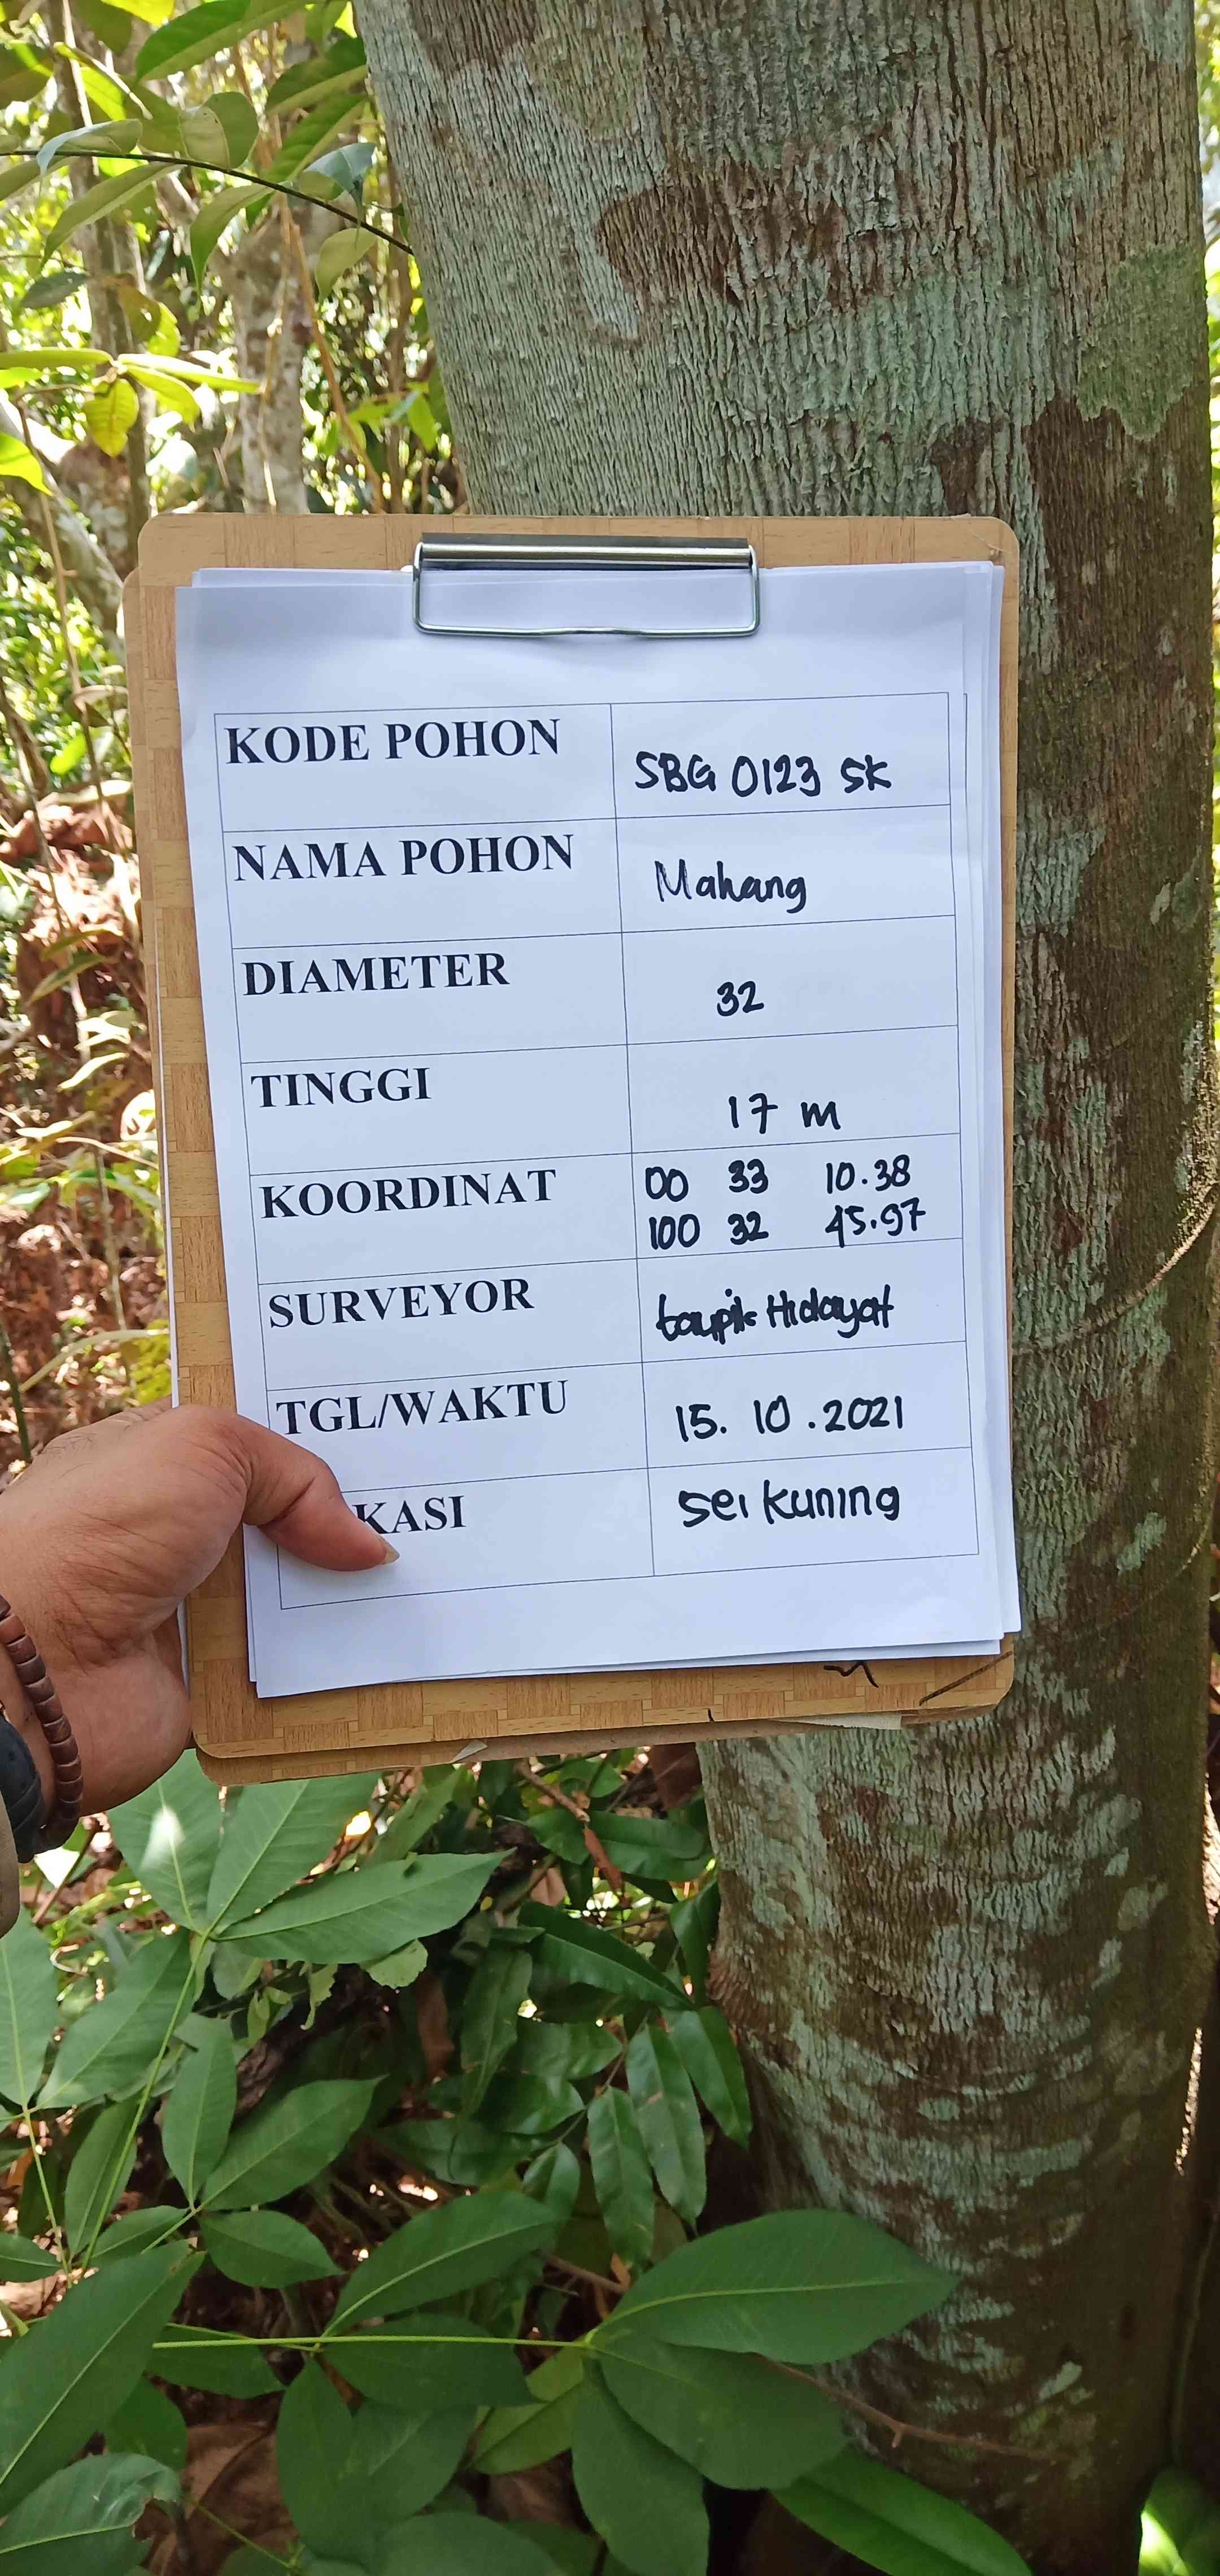 KODE POHON SBG 0123 SK
NAMA POHON Mahang
DIAMETER 32
TINGGI 17 m
KOORDINAT 00 33 10.38
100 32 45.97
SURVEYOR taupik Hidayat
TGL/WAKTU 15. 10 .2021
KASI Sei Kuning